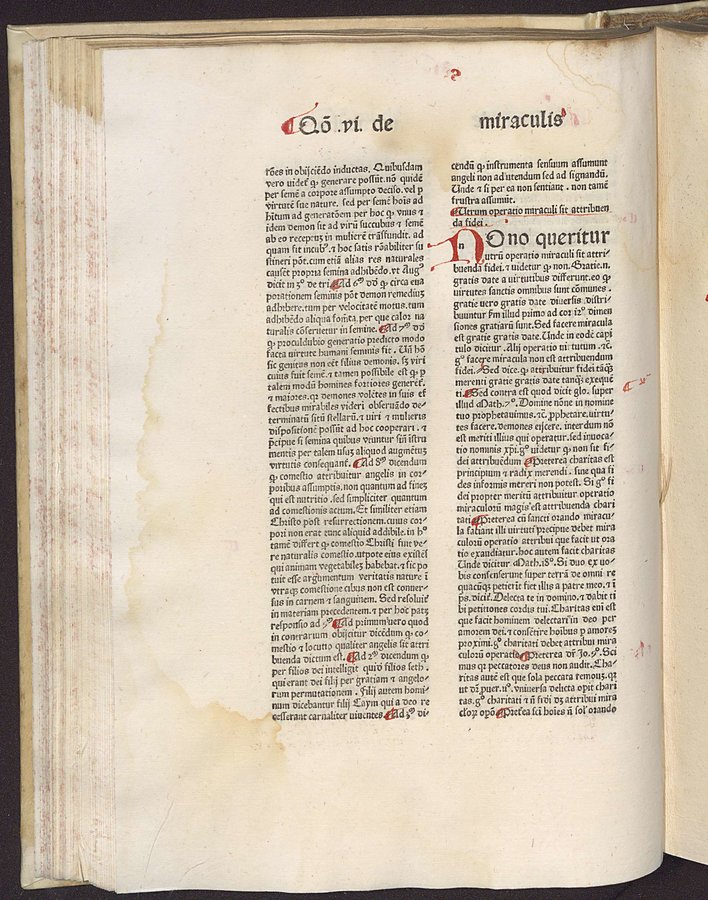 Qō .vi. de miraculis
rōes in obijciēdo inductas. Quibusdam
vero videt̄ ꝙ generare possūt. nō quidē
per semē a corpore assumpto deciso. vel ꝑ
virtutē sue nature. sed per semē hoīs ad
hītum ad generatōem per hoc ꝙ vnus ⁊
idem demon sit ad virū succubus ⁊ semē
ab eo receptuʒ in mulierē trāsfundit. ad
quam fit incubꝰ. ⁊ hoc satis rōnabiliter su
stineri pōt. cum etiā alias res naturales
causēt propria semina adhibēdo. vt Augꝰ
dicit in 3º de tri. Ad 6ᵐ dō ꝙ circa eua
porationem seminis pōt demon remediuʒ
adhibere. tum per velocitatē motus. tum
adhibēdo aliqua fomēta. per que calor na
turalis cōseruetur in semine. Ad 7ᵐ dō
ꝙ proculdubio generatio predicto modo
facta virtute humani seminis fit. Uñ hō
sic genitus non eēt filius demonis. sʒ viri
cuius fuit semē. ⁊ tamen possibile est ꝙ ꝑ
talem modū homines fortiores generēt̄.
⁊ maiores. qꝛ demones volētes in suis ef
fectibus mirabiles videri obseruādo de-
terminatū sitū stellarū. ⁊ viri ⁊ mulieris
dispositionē possūt ad hoc cooperari. ⁊
p̄cipue si semina quibus vtuntur sīn̄ istru
mentis per talem vsuʒ aliquod augmētuʒ
virtutis consequant̄. Ad 8ᵐ dicendum
ꝙ comestio attribuitur angelis in cor-
poribus assumptis. non quantum ad fineʒ
qui est nutritio. sed simpliciter quantum
ad comestionis actum. Et similiter etiam
Christo post resurrectionem. cuius cor-
pori non erat tunc aliquid addibile. in hº
tamē differt ꝙ comestio Christi fuit ve-
re naturalis comestio. vtpote eius existēs
qui animam vegetabileʒ habebat. ⁊ sic po
tuit esse argumentum veritatis nature ī
vtraqʒ comestione cibus non est conuer-
sus in carnem ⁊ sanguinem. Sed resolut̄
in materiam precedentem. ⁊ per hoc patʒ
responsio ad 9ᵐ. Ad primum vero quod
in contrarium obijcitur dicēdum ꝙ co-
mestio ⁊ locutio qualiter angelis sit attri
buenda dictum est. Ad 2ᵐ dicendum ꝙ
per filios dei intelligit̄ quid̄ filios seth.
qui erant dei filij per gratiam ⁊ angelo-
rum permutationem. Filij autem homi-
num dicebantur filij Cayn qui a deo re
cesserant carnaliter viuentes. Ad 3ᵐ di-
cendū ꝙ instrumenta sensuum assumunt
angeli non ad vtendum sed ad signandū.
Unde ⁊ si per ea non sentiant. non tamē
frustra assumūt.
Utrum operatio miraculi sit attribuen
da fidei.
NOno queritur
vtrū operatio miraculi sit attri-
buenda fidei. ⁊ videtur ꝙ non. Gratie. n.
gratis date a virtutibus differunt. eo ꝙ
virtutes sanctis omnibus sunt cōmunes.
gratie vero gratis date diuersis distri-
buuntur fm̄ illud primo ad cor. 12º dimen
siones gratiarū sunt. Sed facere miracula
est gratie gratis date. Unde in eodē capi
tulo dicitur. Alij operatio virtutum. ⁊c.
gº facere miracula non est attribuendum
fidei. Sed dice. ꝙ attribuitur fidei tāqʒ
merenti gratie gratis date tanqʒ exequē
ti. Sed contra est quod dicit glo. super
illud Math. 7º. Domine nōne in nomine
tuo prophetauimus. ⁊c. ꝓphetare. virtu-
tes facere. demones eijcere. interdum nō
est meriti illius qui operatur. sed inuoca-
tio nominis xp̄i. gº videtur ꝙ non sit fi-
dei attribuēdum Preterea charitas est
principium ⁊ radix merendi. sine qua fi
des informis mereri non potest. Si gº fi
dei propter meritū attribuitur operatio
miraculorū magis est attribuenda chari
tati. Preterea cū sancti orando miracu-
la faciant illi virtuti precipue debet mira
culorū operatio attribui que facit vt ora
tio exaudiatur. hoc autem facit charitas
Unde dicitur Math. 18º. Si duo ex vo-
bis consenserint super terrā de omni re
quacūqʒ petierīt fiet illis a patre meo. ⁊ ī
ps̄. dicit̄. Delecta te in domino. ⁊ dabit ti
bi petitiones cordis tui. Charitas eni est
que facit hominem delectari in deo per
amorem dei. ⁊ consētire hoībus ꝑ amoreʒ
proximi. gº charitati debet attribui mira
culorū operatio. Preterea dr̄. Jo. 9º. Sci
mus qꝛ peccatores deus non audit. Cha-
ritas autē est que sola peccata remouʒ. qꝛ
vt dʒ puer. 11º. vniuersa delicta opit chari
tas. gº charitati ⁊ ñ fidi dʒ attribui mira
cloꝝ opō. Preťea sci hoīes ñ solꝰ orando